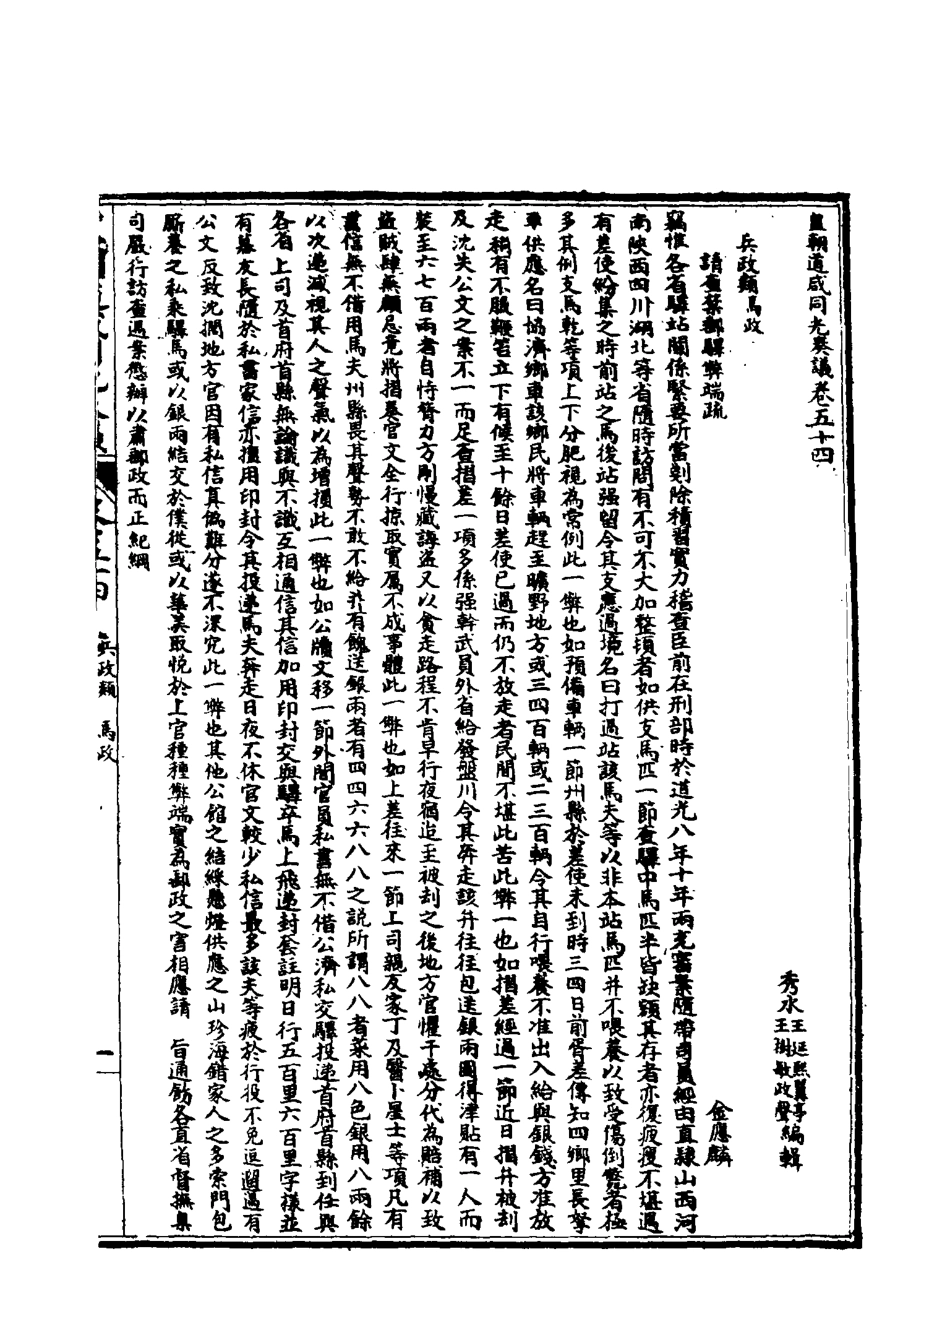 皇朝道咸同光奏議卷五十四
秀水王延熙翼亭王樹敏政聲編輯
兵政類馬政
請查禁郵驛弊端疏
金應麟
竊惟各省驛站關係緊要所當刻除積習實力稽查臣前在刑部時於道光八年十年兩充審案隨帶司員經由直隸山西河
南陝西四川湖北等省隨時訪問有不可不大加整頓者如供支馬匹一節查驛中馬匹半皆缺額其存者亦復疲瘦不堪遇
有差使紛集之時前站之馬後站强留令其支應過境名曰打過站該馬夫等以非本站馬匹并不喂養以致受傷倒斃者極
多其例支馬乾等項上下分肥視為常例此一弊也如預備車輛一節州縣於差使未到時三四日前胥差傳知四鄉里長拏
車供應名曰協濟鄉車該鄉民將車輛趕至曠野地方或三四百輛或二三百輛令其自行喂養不准出入給與銀錢方准放
走稍有不服鞭笞立下有候至十餘日差使已過而仍不放走者民間不堪此苦此弊一也如摺差經過一節近日摺弁被刦
及沈失公文之案不一而足查摺差一項多係强幹武員外省給發盤川令其奔走該弁往往包送銀兩圖得津貼有一人而
裝至六七百兩者自恃膂力方剛慢藏誨盜又以貪走路程不肯早行夜宿迨至被刦之後地方官懼干處分代為賠補以致
盜賊肆無顧忌竟將摺奏官文全行掠取實屬不成事體此一弊也如上差往來一節上司親友家丁及醫卜星士等項凡有
書信無不借用馬夫州縣畏其聲勢不敢不給并有餽送銀兩者有四四六六八八之說所謂八八者菜用八色銀用八兩餘
以次遞減視其人之聲氣以為增損此一弊也如公牘文移一節外間官員私書無不借公濟私交驛投遞首府首縣到任與
各省上司及首府首縣無論識與不識互相通信其信加用印封交與驛卒馬上飛遞封套註明日行五百里六百里字樣並
有幕友長隨於私書家信亦擅用印封令其投遞馬夫奔走日夜不休官文較少私信最多該夫等疲於行役不免逗遛遇有
公文反致沈擱地方官因有私信真僞難分遂不深究此一弊也其他公館之結綵懸燈供應之山珍海錯家人之多索門包
廝養之私乘驛馬或以銀兩結交於僕從或以華美取悅於上官種種弊端實為郵政之害相應請　旨通飭各直省督撫臬
司嚴行訪查遇案懲辦以肅郵政而正紀綱
兵政類　馬政
一